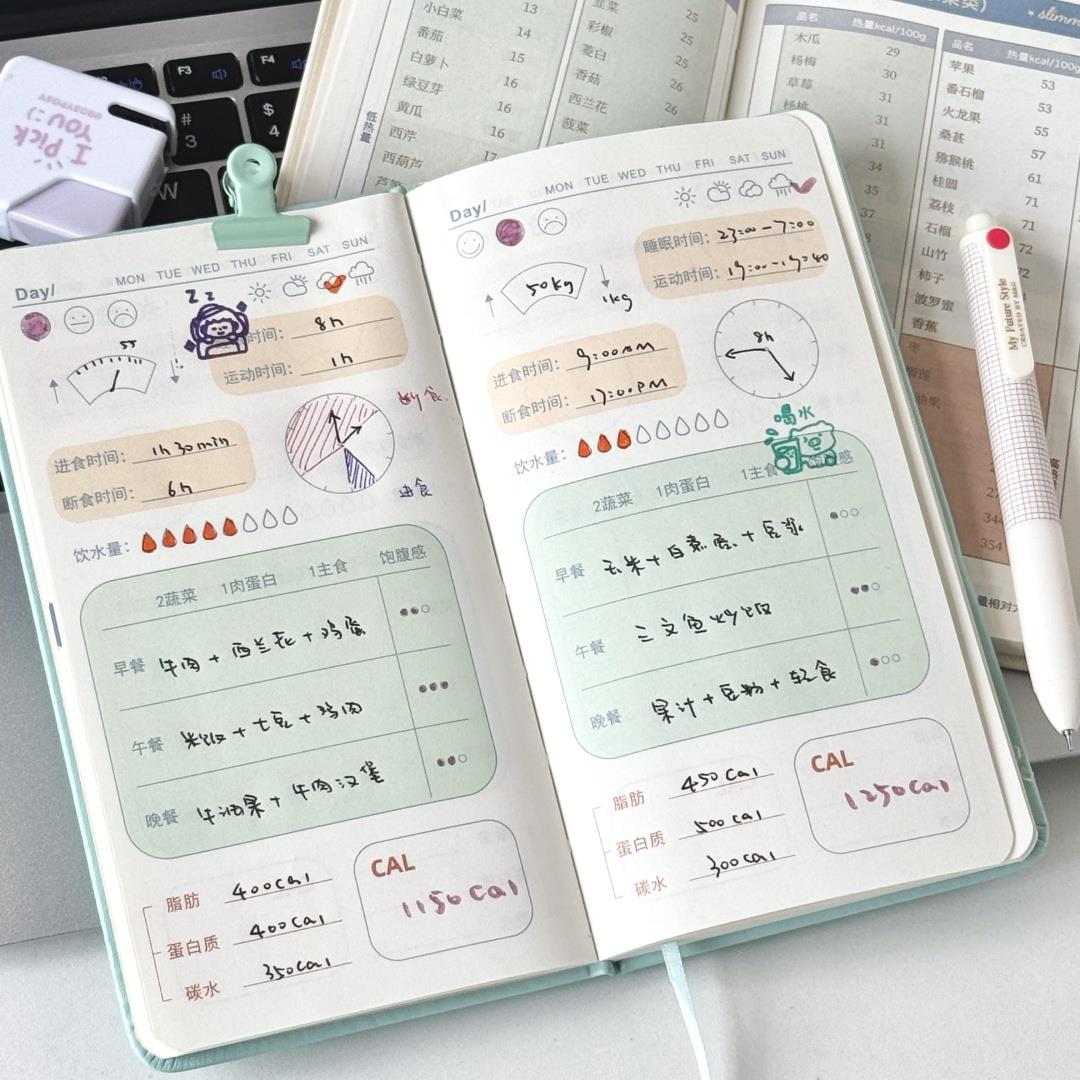 小白菜 13
番茄 14
白萝卜 15
绿豆芽 16
黄瓜 16
西芹 16
西葫芦 17
低热量
韭菜 25
彩椒 25
茭白 25
香菇 26
西兰花 26
菠菜
品名 热量kcal/100g
木瓜 29
杨梅 30
草莓 31
杨桃 31
31
34
35
37
slimm
品名 热量kcal/100g
苹果 53
番石榴 53
火龙果 55
桑葚 57
猕猴桃 61
桂圆 71
荔枝 71
石榴 72
山竹 72
柿子
波罗蜜
香蕉
枣
344
354
F3
F4
#
3
$
4
W
I PiCK
YOU :)
My Future Style
CREATED BY M&G
Day/ MON TUE WED THU FRI SAT SUN
Z z
时间: 8h
运动时间: 1h
55
断食
进食时间: 1h 30min
断食时间: 6h
进食
饮水量:
2蔬菜 1肉蛋白 1主食 饱腹感
早餐 牛肉+西兰花+鸡蛋
午餐 米饭+土豆+鸡肉
晚餐 牛油果+牛肉汉堡
脂肪 400cal
蛋白质 400cal
碳水 350cal
CAL
1150cal
Day/ MON TUE WED THU FRI SAT SUN
睡眠时间: 23:00-7:00
50kg
1kg
进食时间: 9:00AM
断食时间: 17:00PM
8h
饮水量:
喝水
2蔬菜 1肉蛋白 1主食 感
早餐 玉米+白煮蛋+豆浆
午餐 三文鱼炒饭
晚餐 果汁+豆粉+轻食
脂肪 450cal
蛋白质 500cal
碳水 300cal
CAL
1250cal